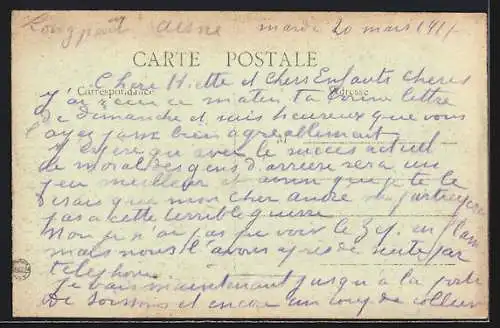 Longpont Aisne mardi 20 mars 1917
CARTE POSTALE
Correspondance Adresse
Chère Hiette et chers Enfants chéris
j'ai reçu ce matin ta bonne lettre
de Dimanche et suis heureux que vous
l'ayez bien agréablement
J'espère que avec le succès actuel
le moral des gens d'arrière sera un
peu meilleur et que je te le
disais que mon cher andré ne
pas a cette terrible guerre
Mon je n'ai pas pu voir le Zep. en
mais nous l'avons apris de suite par
téléphone.
Je vais maintenant jusqu'a la porte
de Soissons et encore un coup de collier